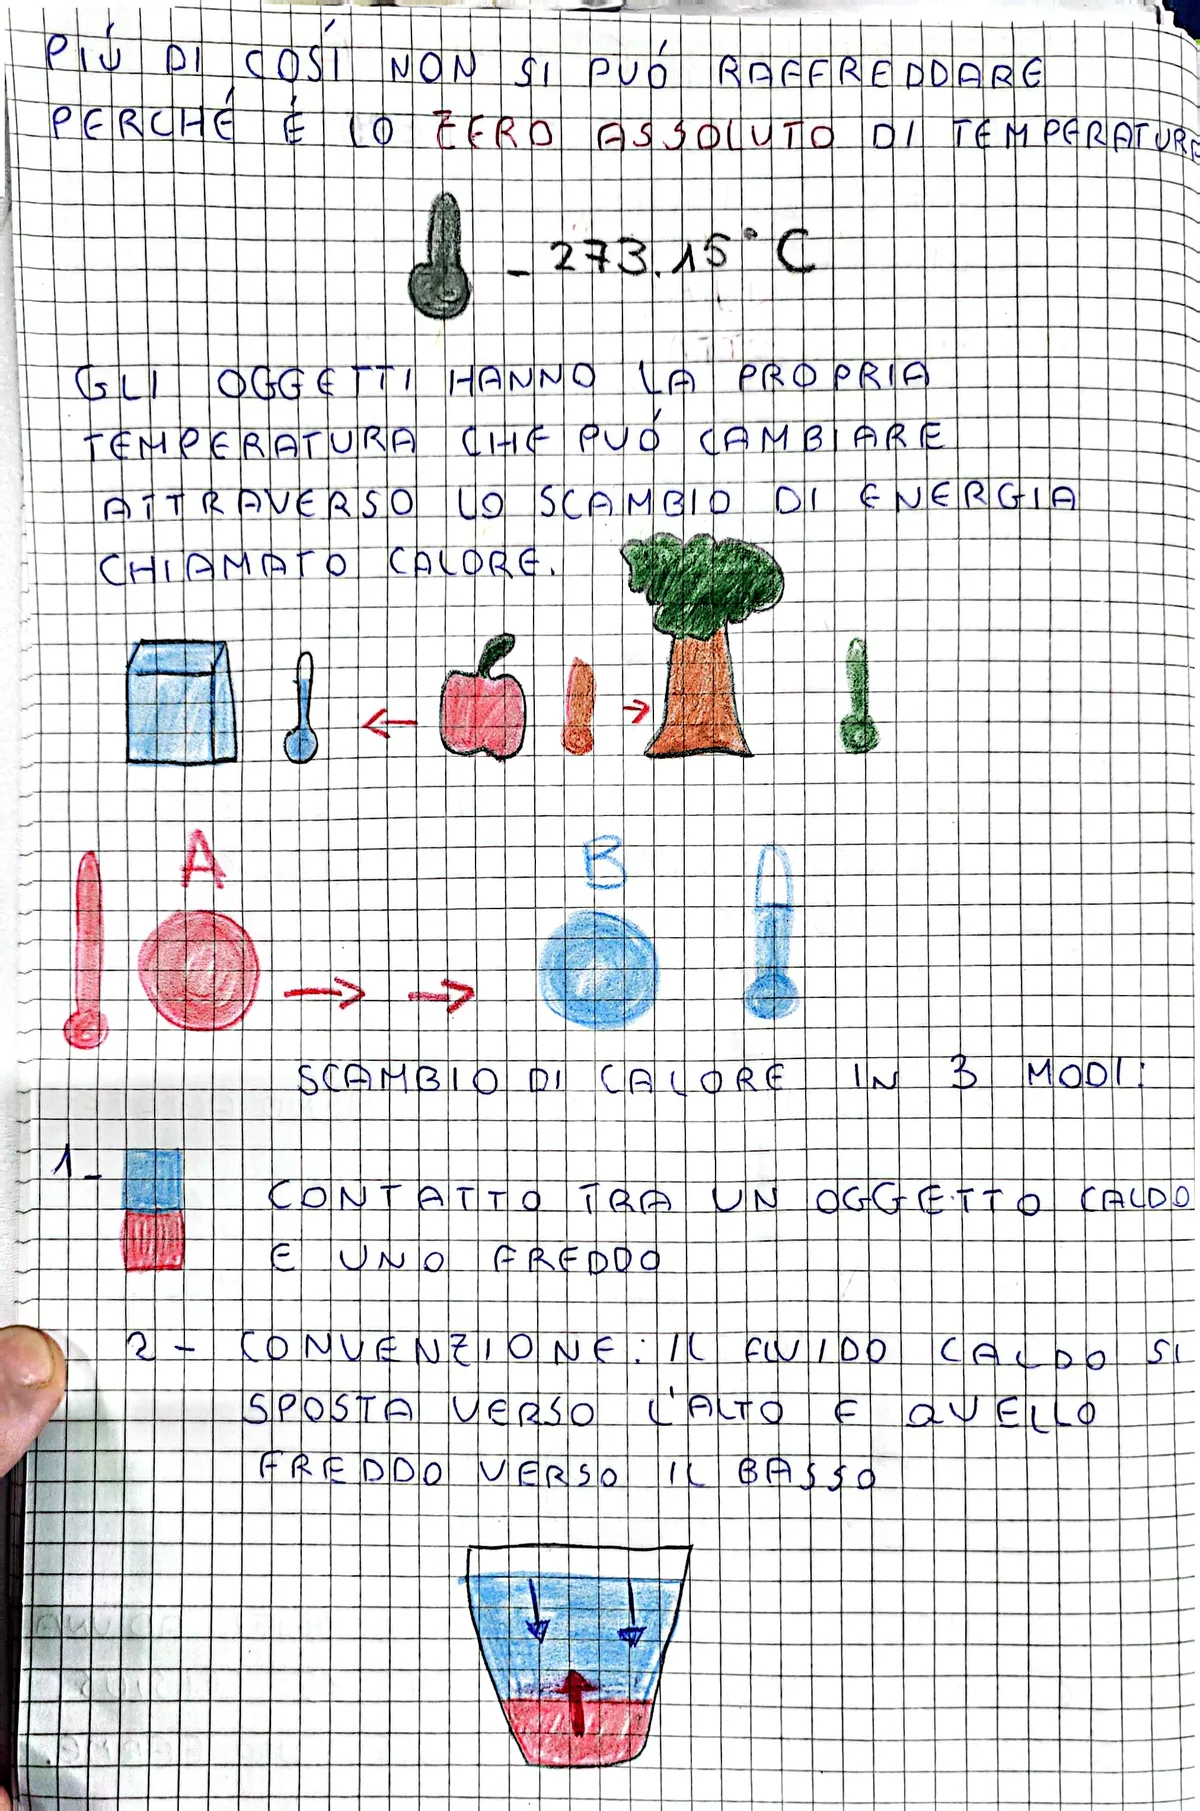 PIÚ DI COSÍ NON SI PUÓ RAFFREDDARE
PERCHÉ É LO ZERO ASSOLUTO DI TEMPERATURA
- 273.15° C
GLI OGGETTI HANNO LA PROPRIA
TEMPERATURA CHE PUÓ CAMBIARE
ATTRAVERSO LO SCAMBIO DI ENERGIA
CHIAMATO CALORE.
A B
SCAMBIO DI CALORE IN 3 MODI:
1- CONTATTO TRA UN OGGETTO CALDO
E UNO FREDDO
2 - CONVENZIONE: IL FLUIDO CALDO SI
SPOSTA VERSO L'ALTO E QUELLO
FREDDO VERSO IL BASSO